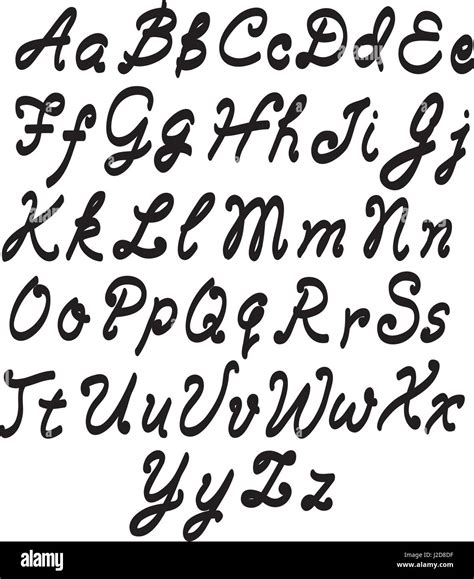 Aa Bb Cc Dd Ee
Ff Gg Hh Ii Jj
Kk Ll Mm Nn
Oo Pp Qq Rr Ss
Tt Uu Vv Ww Xx
Yy Zz
alamy stock photo
J2D8DF
www.alamy.com